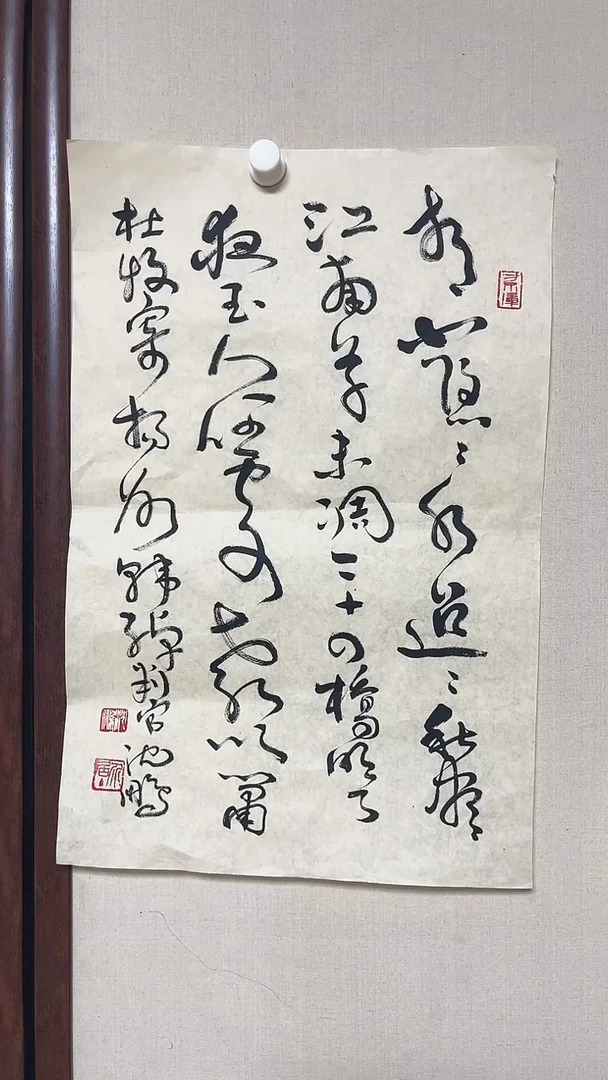 青山隱々水迢々秋盡
江南草未凋二十四橋明月
夜玉人何處教吹簫
杜牧寄揚州韓綽判官沈鵬